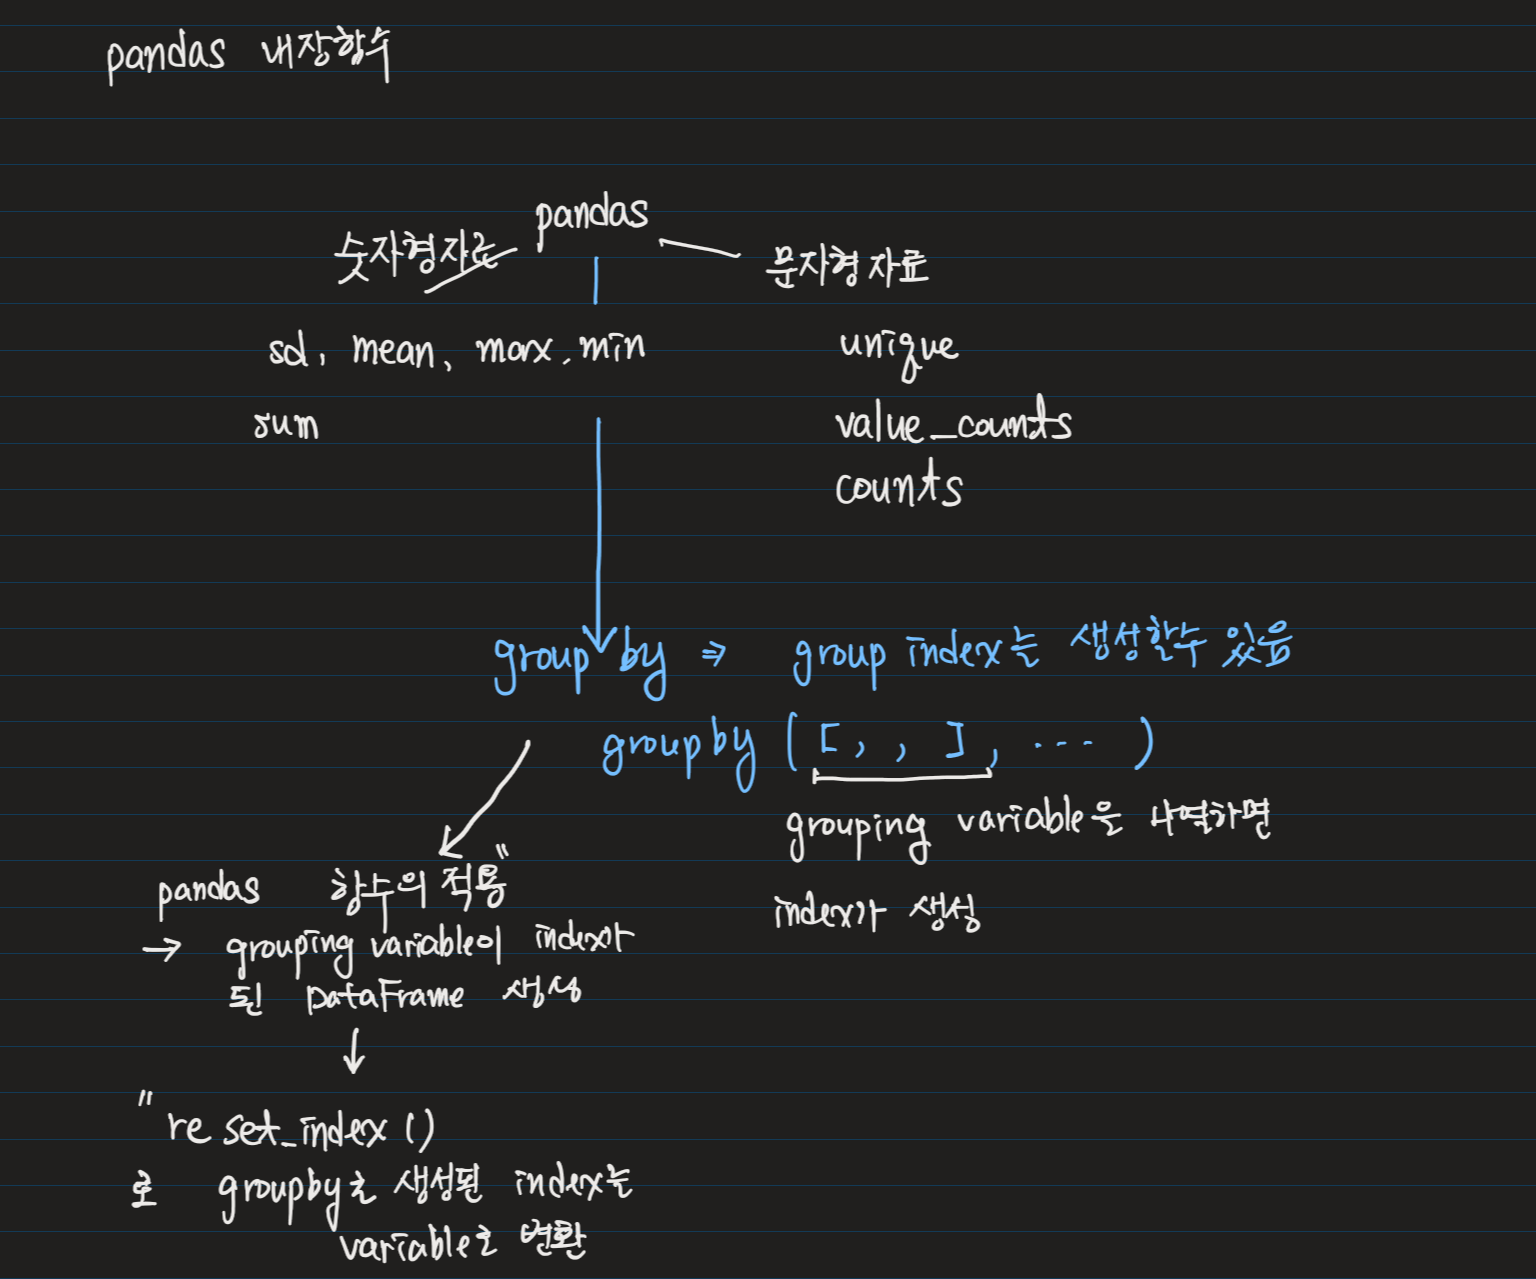 pandas 내장함수
pandas
숫자형자료
문자형 자료
sd, mean, max, min
unique
sum
value_counts
counts
group by ⇒ group index는 생성할수 있음
groupby ([ , , ], ... )
grouping variable을 나열하면
index가 생성
pandas 함수의 적용"
→ grouping variable이 index가
된 DataFrame 생성
"reset_index ()
로 groupby로 생성된 index는
variable로 변환